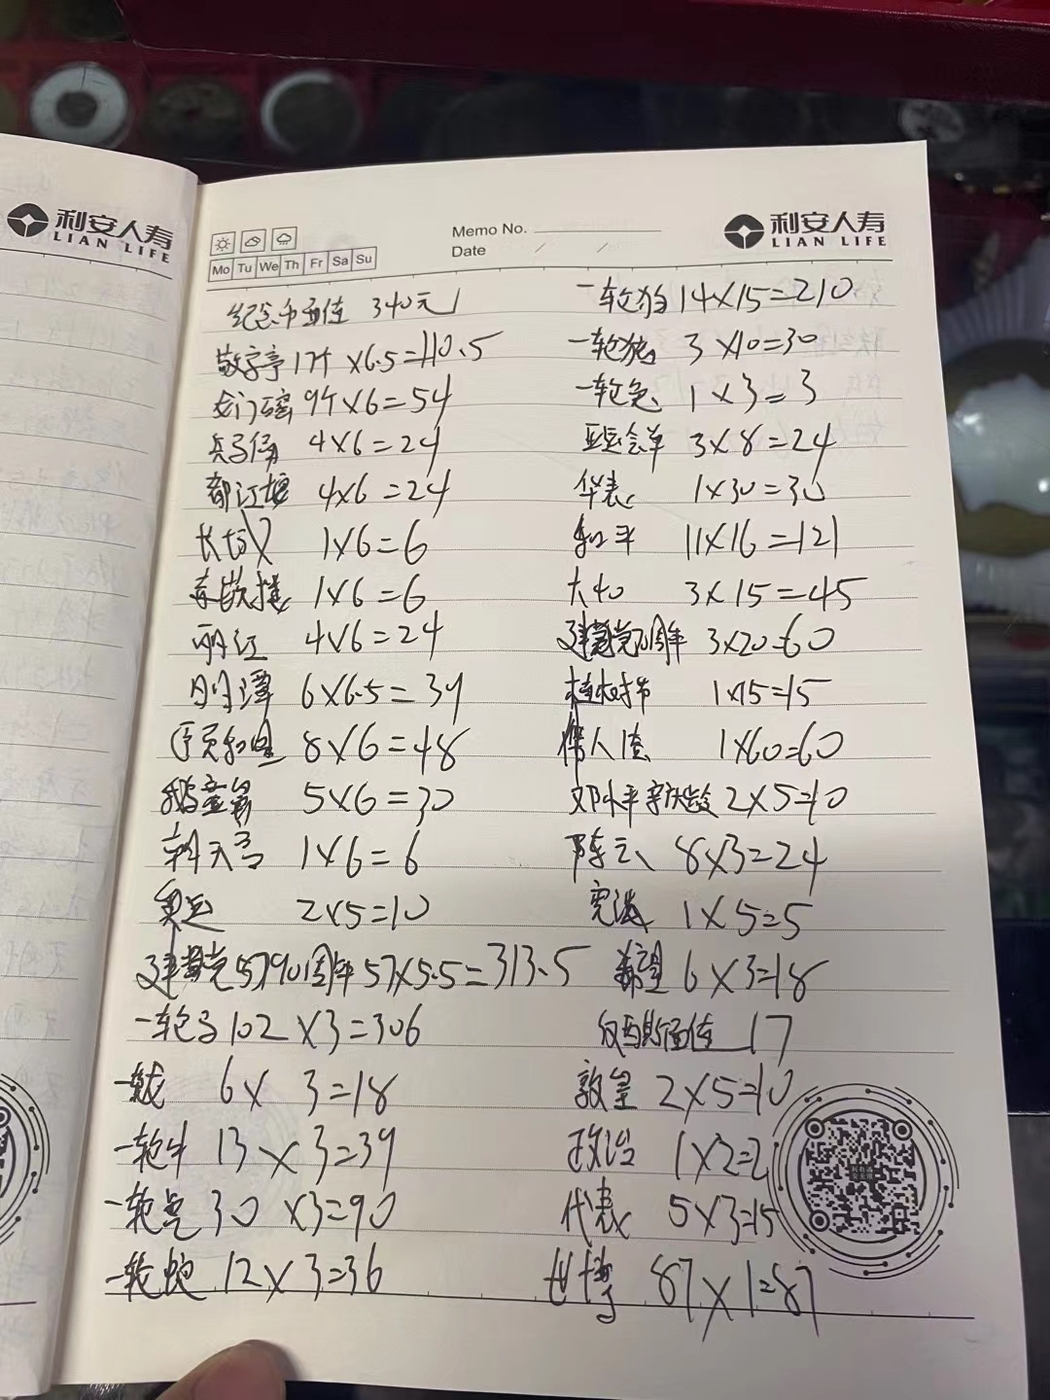 利安人寿
LIAN LIFE
Memo No.
Date / /
Mo Tu We Th Fr Sa Su
利安人寿
LIAN LIFE
纪念币面值 340元
敬字亭 17个 ×6.5=110.5
龙门石窟 9个×6=54
兵马俑 4×6=24
都江堰 4×6=24
长城 1×6=6
赤嵌楼 1×6=6
丽江 4×6=24
日月潭 6×6.5=39
8×6=48
5×6=30
朝天宫 1×6=6
奥运 2×5=10
建党90周年 57×5.5=313.5
一轮马 102×3=306
一轮龙 6×3=18
一轮牛 13×3=39
一轮 30×3=90
一轮蛇 12×3=36
一轮狗 14×15=210
一轮猪 3×10=30
一轮兔 1×3=3
亚运会单 3×8=24
华表 1×30=30
和平 11×16=121
大和 3×15=45
建党70周年 3×20=60
植树节 1×15=15
伟人 1×60=60
邓小平 2×5=10
陈云 8×3=24
宪法 1×5=5
希望 6×3=18
面值 17
敦皇 2×5=10
政治 1×2=2
代表 5×3=15
世博 87×1=87